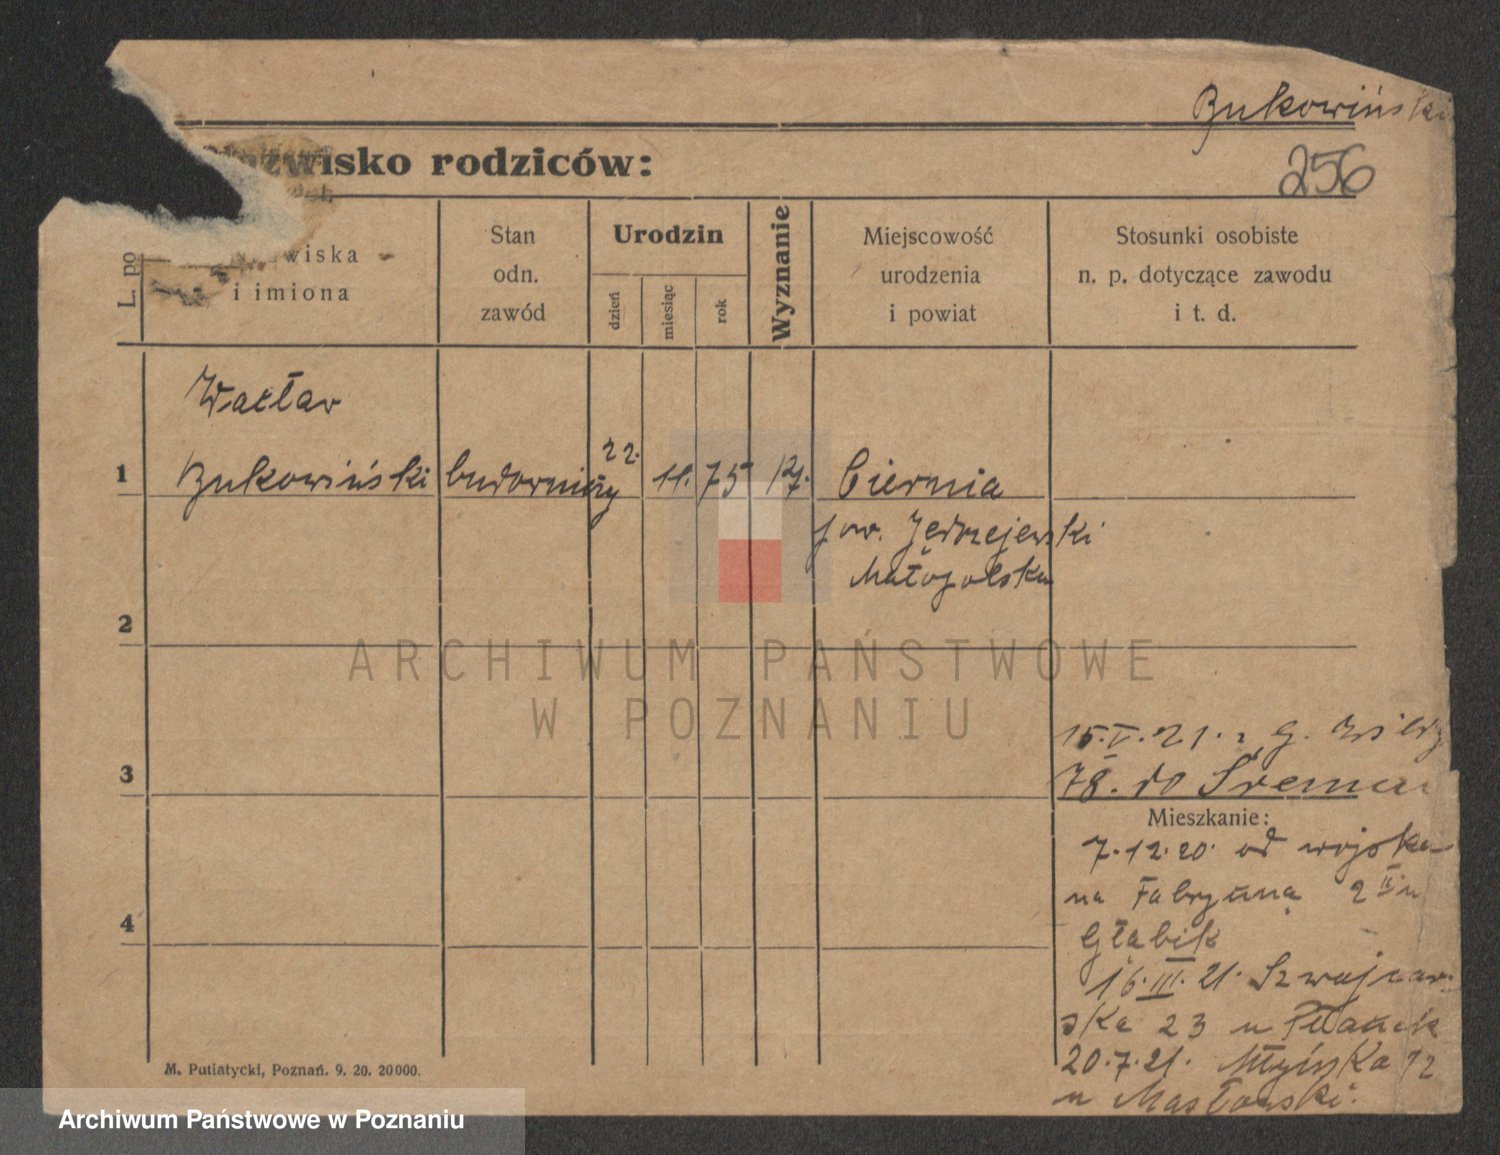 Bukowiński
256
Nazwisko rodziców:
L. po
wiska
i imiona
Stan
odn.
zawód
Urodzin
dzień
miesiąc
rok
Wyznanie
Miejscowość
urodzenia
i powiat
Stosunki osobiste
n. p. dotyczące zawodu
i t. d.
Wacław
1 Bukowiński budowniczy 22. 11. 75 Ciernia
pow. Jędrzejewski
Małopolska
2
ARCHIWUM PAŃSTWOWE
W POZNANIU
15.V.21. G.
3 78. do Śremu
Mieszkanie:
7.12.20. od wojska
na Fabryczną 2 II u
4 Głąbik
16.III.21. Szwajcar-
ska 23 u
20.7.21. 12
u Masłowski.
M. Putiatycki, Poznań. 9. 20. 20000.
Archiwum Państwowe w Poznaniu